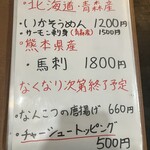 ・北海道・青森産
・いかそうめん 1200円
・サーモン刺身(青森産) 1500円
・熊本県産
・馬刺 1800円
なくなり次第終了予定
・なんこつの唐揚げ 660円
・チャーシュートッピング
500円